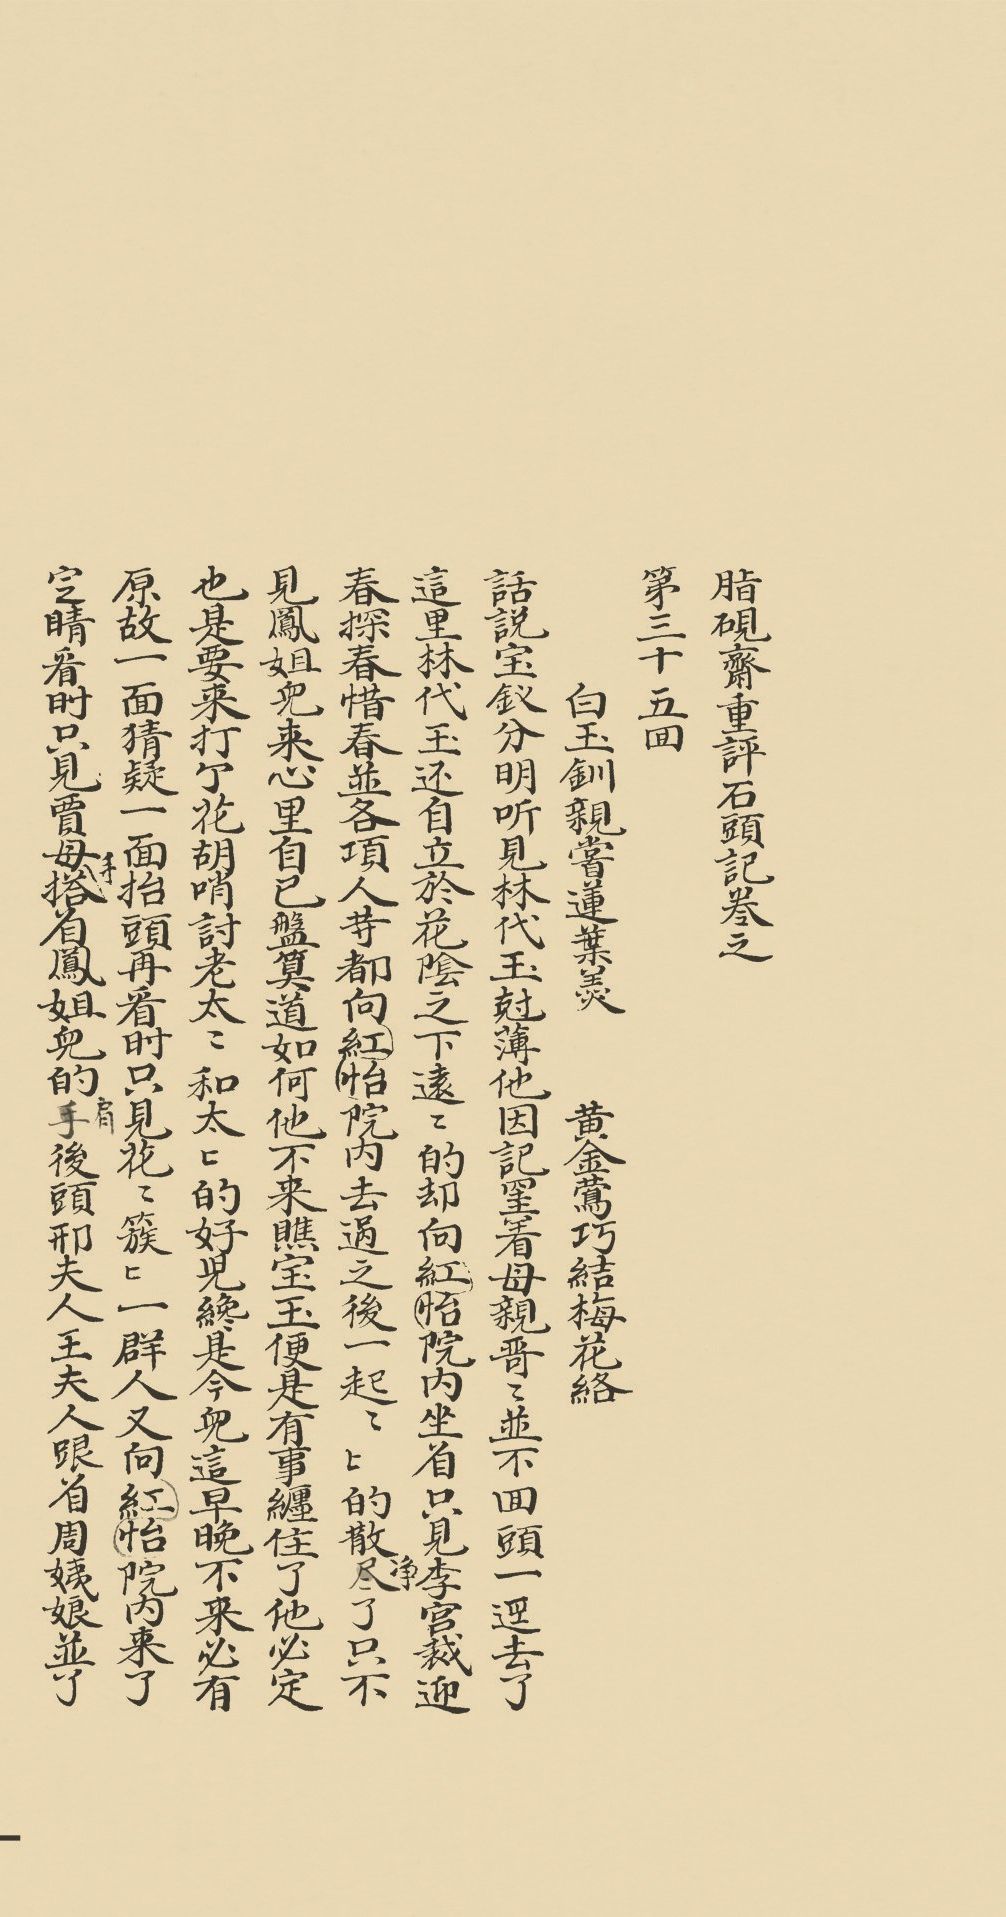 脂硯齋重評石頭記卷之
第三十五回
白玉釧親嘗蓮葉羹 黄金鶯巧結梅花絡
話説宝釵分明听見林代玉尅薄他因記罣着母親哥〻並不回頭一逕去了
這里林代玉还自立於花陰之下遠〻的却向紅怡院内坐着只見李宫裁迎
春探春惜春並各項人等都向紅怡院内去過之後一起〻〻的散尽了只不
淨
見鳳姐兒来心里自己盤算道如何他不来瞧宝玉便是有事纏住了他必定
也是要来打个花胡哨討老太〻和太〻的好児纔是今兒這早晚不来必有
原故一面猜疑一面抬頭再看时只見花〻簇〻一群人又向紅怡院内来了
定睛看时只見賈母搭着鳳姐兒的手後頭邢夫人王夫人跟着周姨娘並丫
手
肩